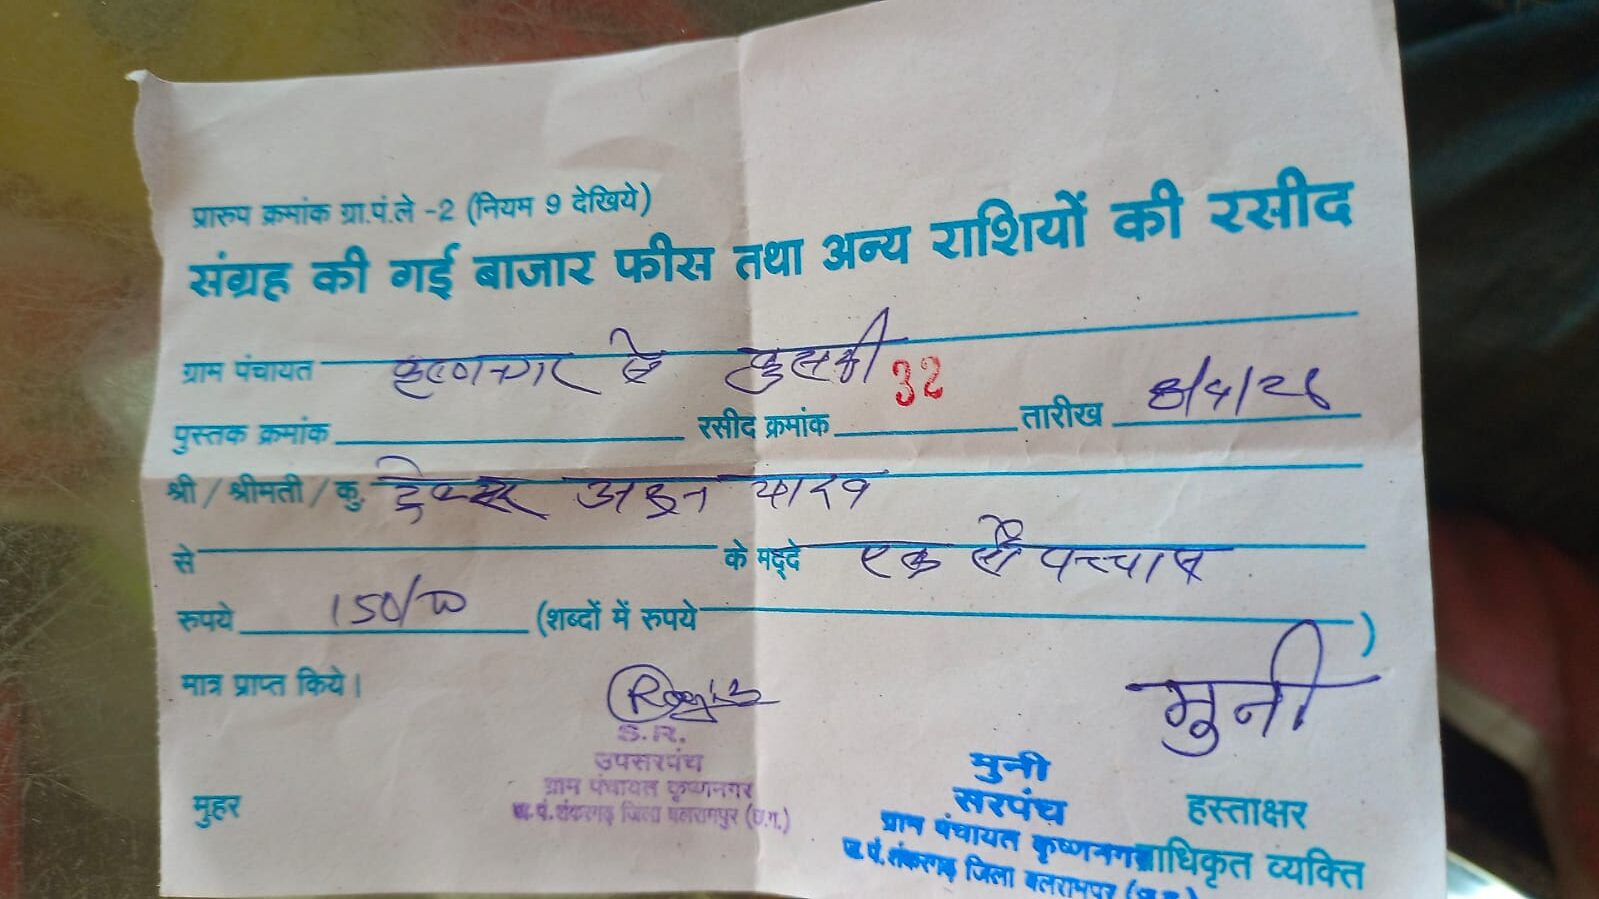 प्रारुप क्रमांक ग्रा.पं.ले -2 (नियम 9 देखिये)
संग्रह की गई बाजार फीस तथा अन्य राशियों की रसीद
ग्राम पंचायत कृष्णनगर से
पुस्तक क्रमांक रसीद क्रमांक 32 तारीख
श्री / श्रीमती / कु. यादव
से के मद्दे एक सौ पच्चास
रुपये 150/ (शब्दों में रुपये )
मात्र प्राप्त किये।
मुनी
S.R.
उपसरपंच
ग्राम पंचायत कृष्णनगर
ज.पं.शंकरगढ़ जिला बलरामपुर (छ.ग.)
मुहर
मुनी
सरपंच
ग्राम पंचायत कृष्णनगर
ज.पं.शंकरगढ़ जिला बलरामपुर
हस्ताक्षर
प्राधिकृत व्यक्ति